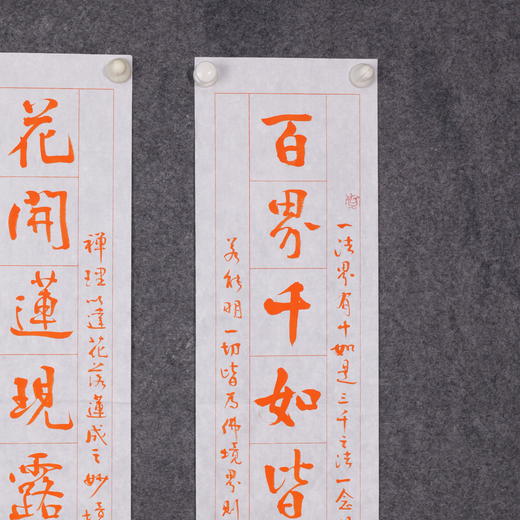 百界千如皆
一法界有十如是三千之法一念
若能明一切皆為佛境界則
花開蓮現露
禪理以蓮花落蓮成之妙境